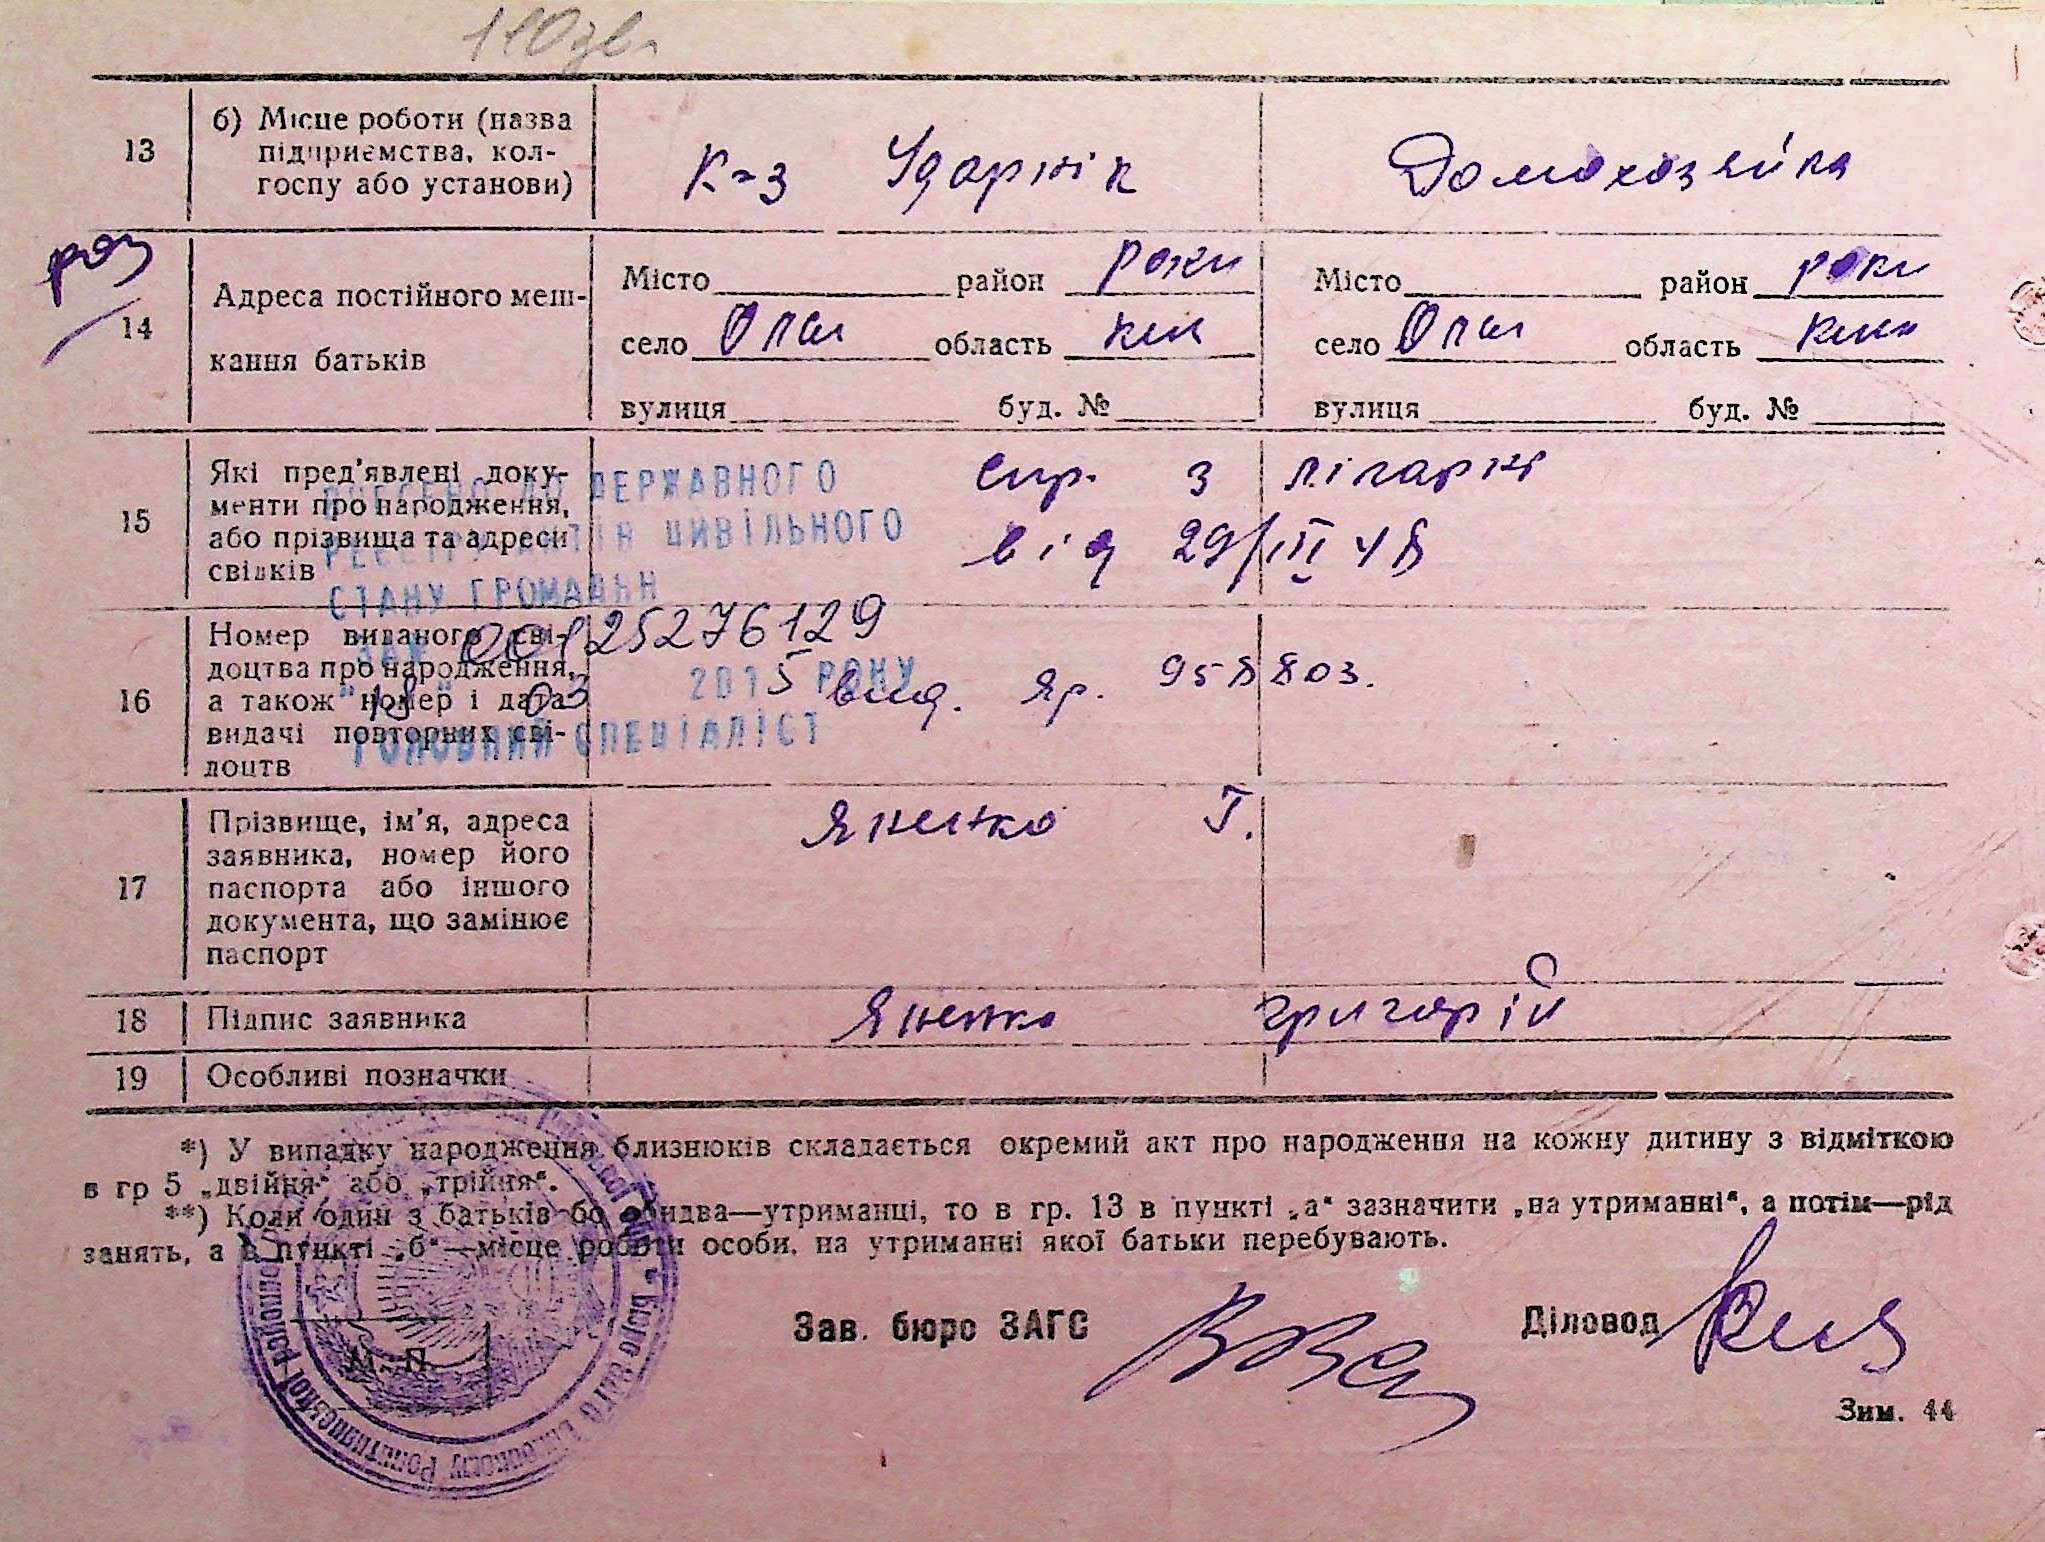 13
б) Місце роботи (назва
підприємства, кол-
госпу або установи)
К-з Ударнік
Домохозяйка
14
Адреса постійного меш-
кання батьків
Місто район Роки
село Оли область кип
вулиця буд. №
Місто район роки
село Оли область кип
вулиця буд. №
15
Які пред'явлені доку-
менти про народження,
або прізвища та адреси
свідків
спр. з лікарні
від 29/III 48
ВНЕСЕНО ДО ДЕРЖАВНОГО
РЕЄСТРУ АКТІВ ЦИВІЛЬНОГО
СТАНУ ГРОМАДЯН
00125276129
"18" 03 2015 РОКУ
ГОЛОВНИЙ СПЕЦІАЛІСТ
16
Номер виданого сві-
доцтва про народження,
а також номер і дата
видачі повторних сві-
доцтв
вид. Яр. 958803.
17
Прізвище, ім'я, адреса
заявника, номер його
паспорта або іншого
документа, що замінює
паспорт
Яненко Г.
18
Підпис заявника
Яненко Григорій
19
Особливі позначки
*) У випадку народження близнюків складається окремий акт про народження на кожну дитину з відміткою
в гр 5 „двійня“ або „трійня“.
**) Коли один з батьків бо обидва—утриманці, то в гр. 13 в пункті „а“ зазначити „на утриманні“, а потім—рід
занять, а в пункті „б“—місце роботи особи, на утриманні якої батьки перебувають.
М. П.
Зав. бюро ЗАГС
Діловод
Зим. 44